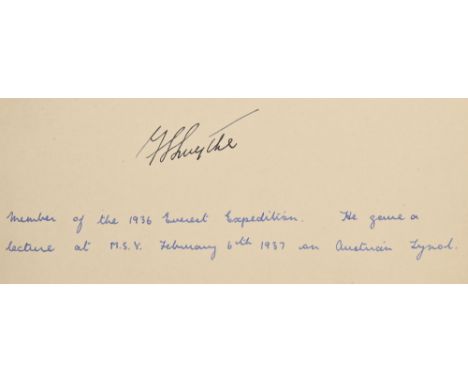 F S Smythe
Member of the 1936 Everest Expedition. He gave a
lecture at M.S.V. February 6th 1937 on Austrian Tyrol.